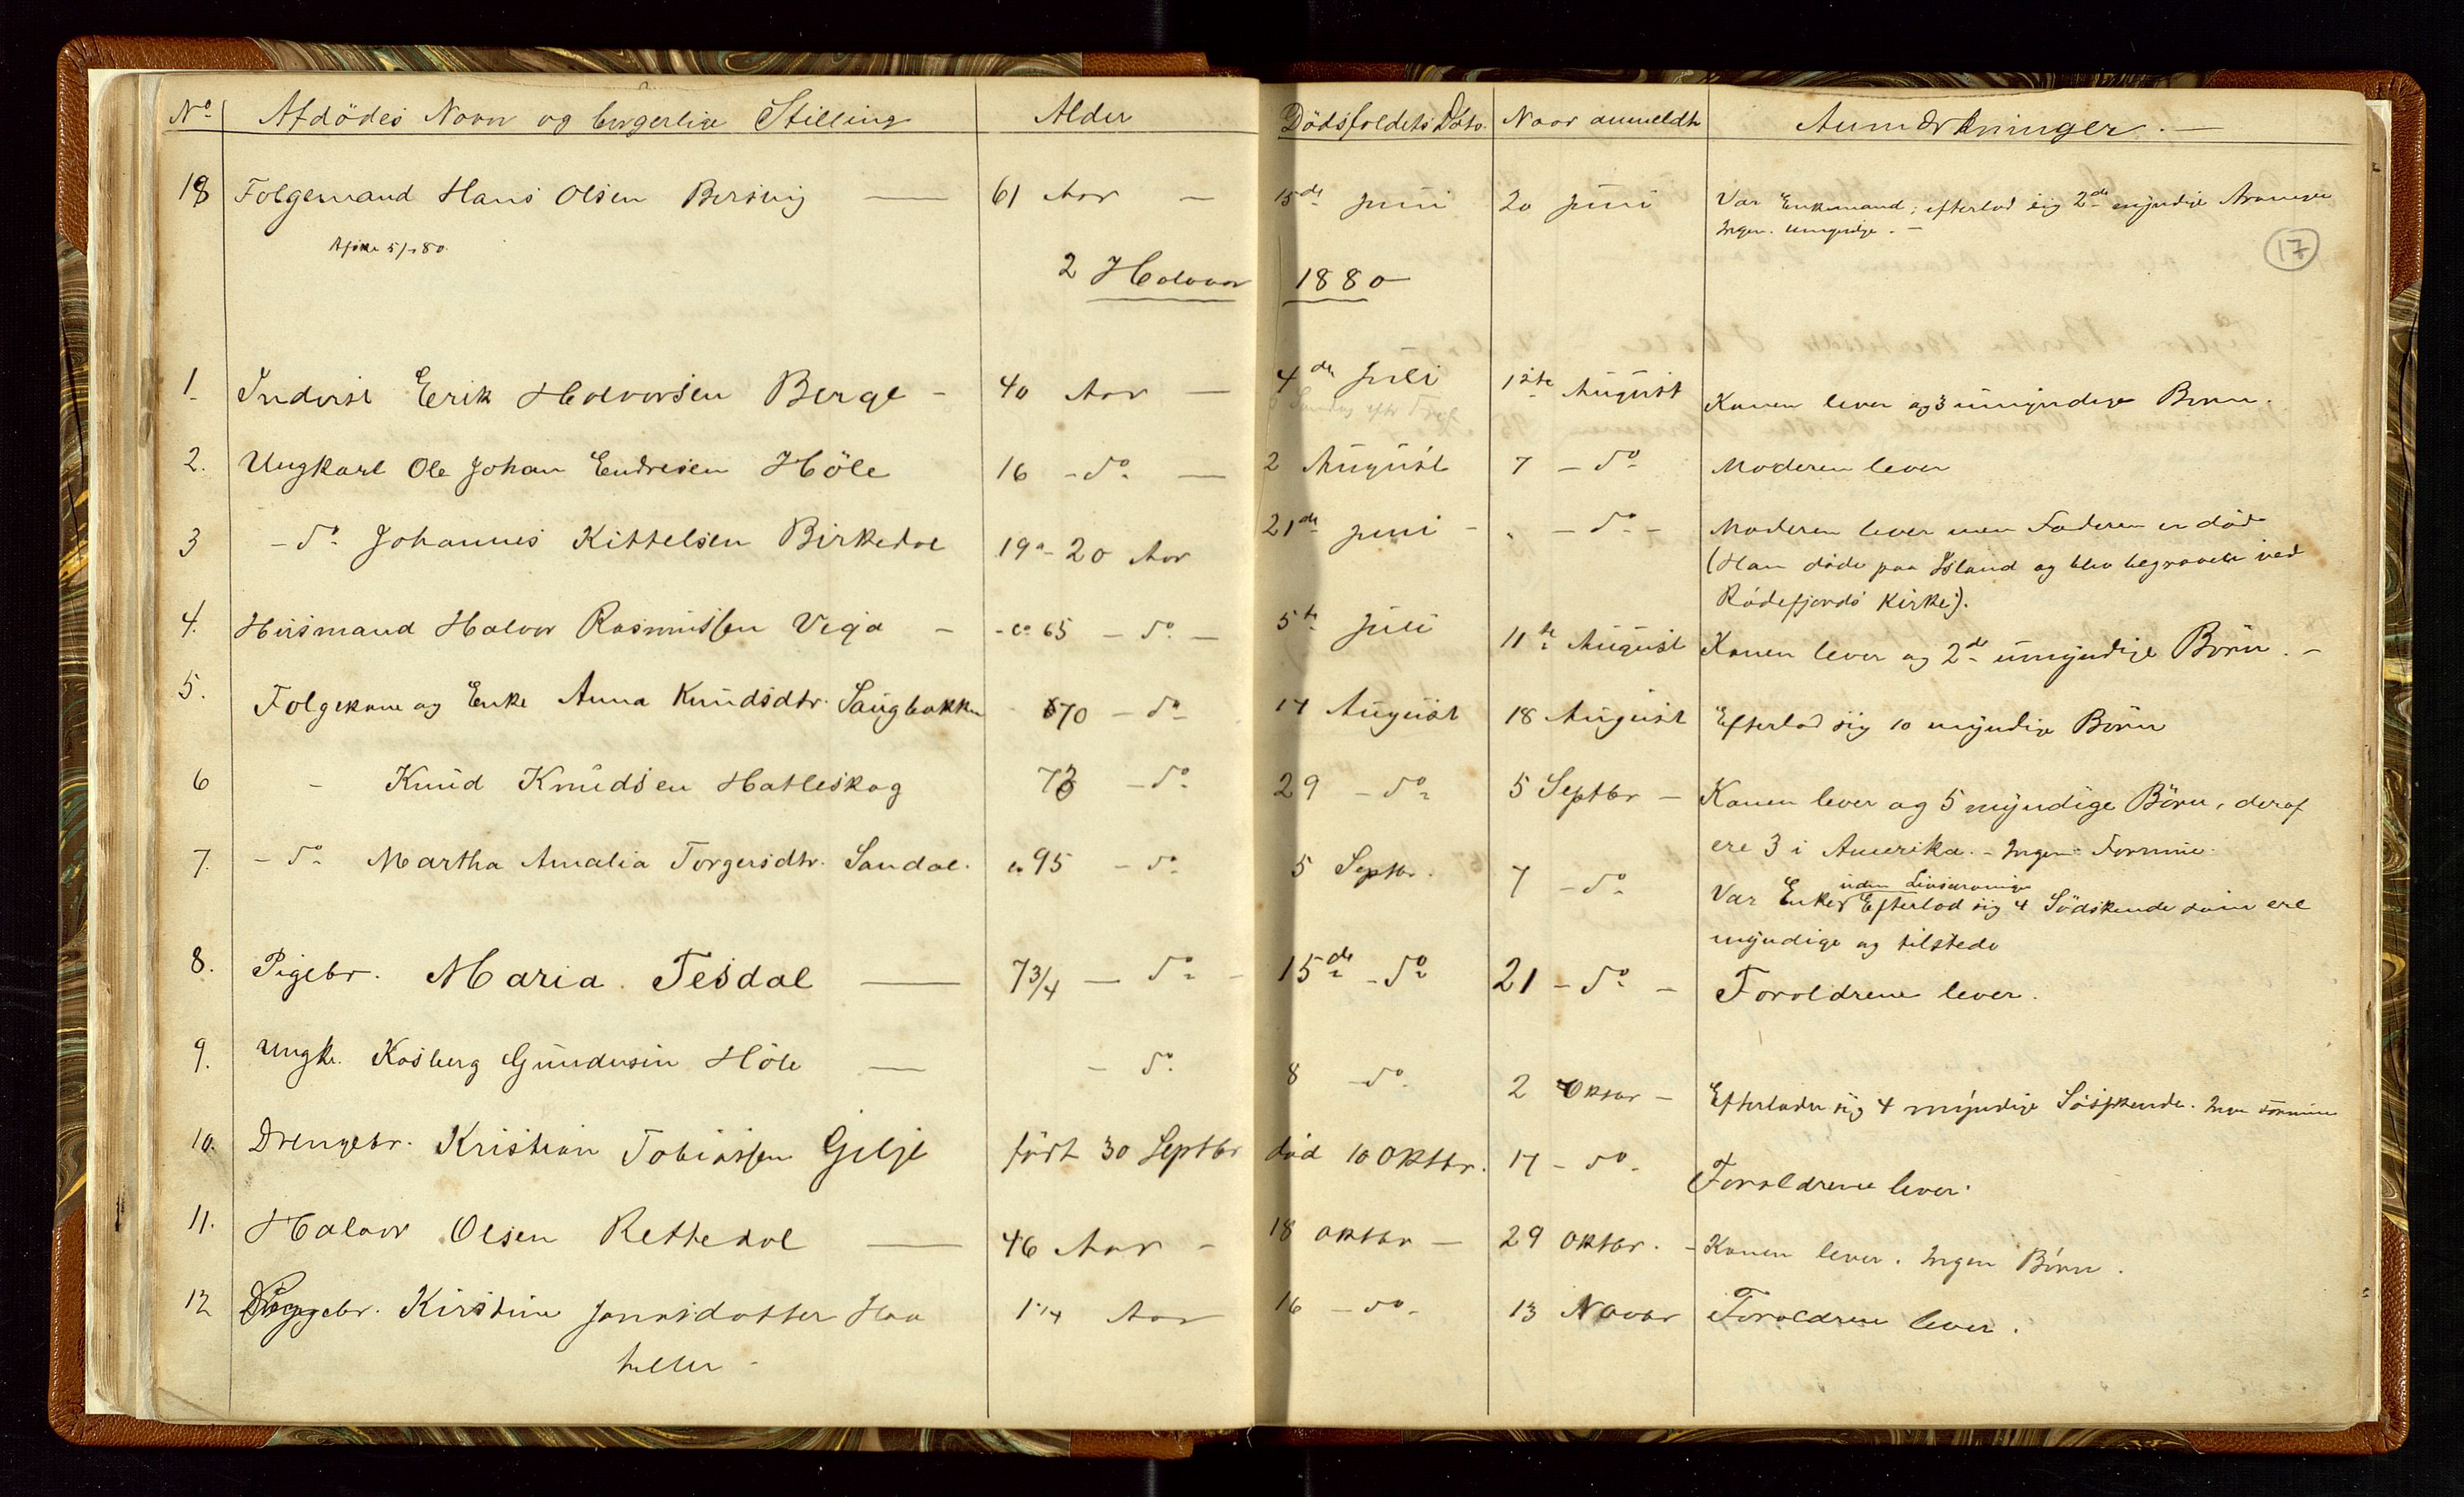 No Afdödes Navn og borgerlige Stilling Alder Dödsfaldets Dato. Naar anmeldt Anmærkninger. —
18 Folgemand Hans Olsen Bersvig — 61 Aar — 15de juni 20 juni Var Enkemand; efterlod sig 2de myndige Arvinger
Ingen umyndige. —
17
2 Halvaar 1880
1. Inderst Erik Halvorsen Berge - 40 Aar — 4de Juli 1ste August Konen lever og 3 umyndige Børn.
2. Ungkarl Ole Johan Endresen Höle 16 - do — 2 August 7 - do Moderen lever
3 - do Johannes Kittelsen Birkedal 19 a 20 Aar 21de juni - - do - Moderen lever men Faderen er död
(Han döde paa Island og blev begravet ved
Rödefjords Kirke).
4. Husmand Halvor Rasmussen Viga - ca 65 - do - 5te Juli 11te August Konen lever og 2de umyndige Börn. -
5. Folgekone og Enke Anna Knudsdtr. Haugbakken 70 - do 14 August 18 August Efterlod sig 10 myndige Börn
6 - Knud Knudsen Hatleskog 73 - do 29 - do 5 Septbr - Konen lever og 5 myndige Börn, deraf
ere 3 i Amerika. - Ingen Formue.
7. - do Martha Amalia Torgersdtr. Sandal. ca 95 - do 5 Septbr. 7 - do
uden Livsarvinger
Var Enke Efterlod sig 4 Södskende som ere
myndige og tilstede
8. Pigebr. Maria Tesdal — 7 3/4 — do - 15de - do 21 - do - Forældrene lever.
9. Ungk. Gundersen Höle — - do 8 - do 2 Oktbr - Efterlader sig 4 myndige Söskende. Ingen Formue
10. Drengebr. Kristian Tobiassen Gilje födt 30 Septbr död 10 Oktbr. 17 - do - Forældrene lever.
11. Halvor Olsen Rettedal — 46 Aar - 18 Oktbr — 29 Oktbr. - Konen lever. Ingen Börn.
12 Pigebr. Kirstine Jonasdatter Haa 1 1/4 Aar 16 - do - 13 Novbr Forældrene lever.
heller -